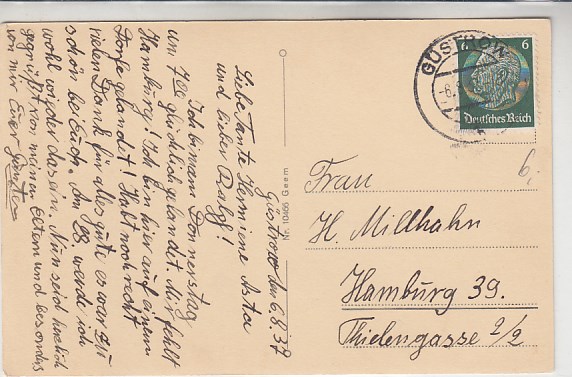 Güstrow den 6.8.37
Liebe Tante Hermine Anta
und lieber Ralf!
Ich bin am Donnerstag
um 7 Uhr glücklich gelandet. Mir fehlt
Hamburg! Ich bin hier auf einem
Dorfe gelandet! Habt noch recht
vielen Dank für alles gute es war zu
schön bei Euch. Am 28. werde ich
wohl wieder da sein. Nun seid herzlich
gegrüßt von meinen Eltern und besonders
von mir Euer
Nr. 10466 Geem
GÜSTROW
6
Deutsches Reich
Frau
H. Millhahn
Hamburg 39.
Thielengasse 2/2